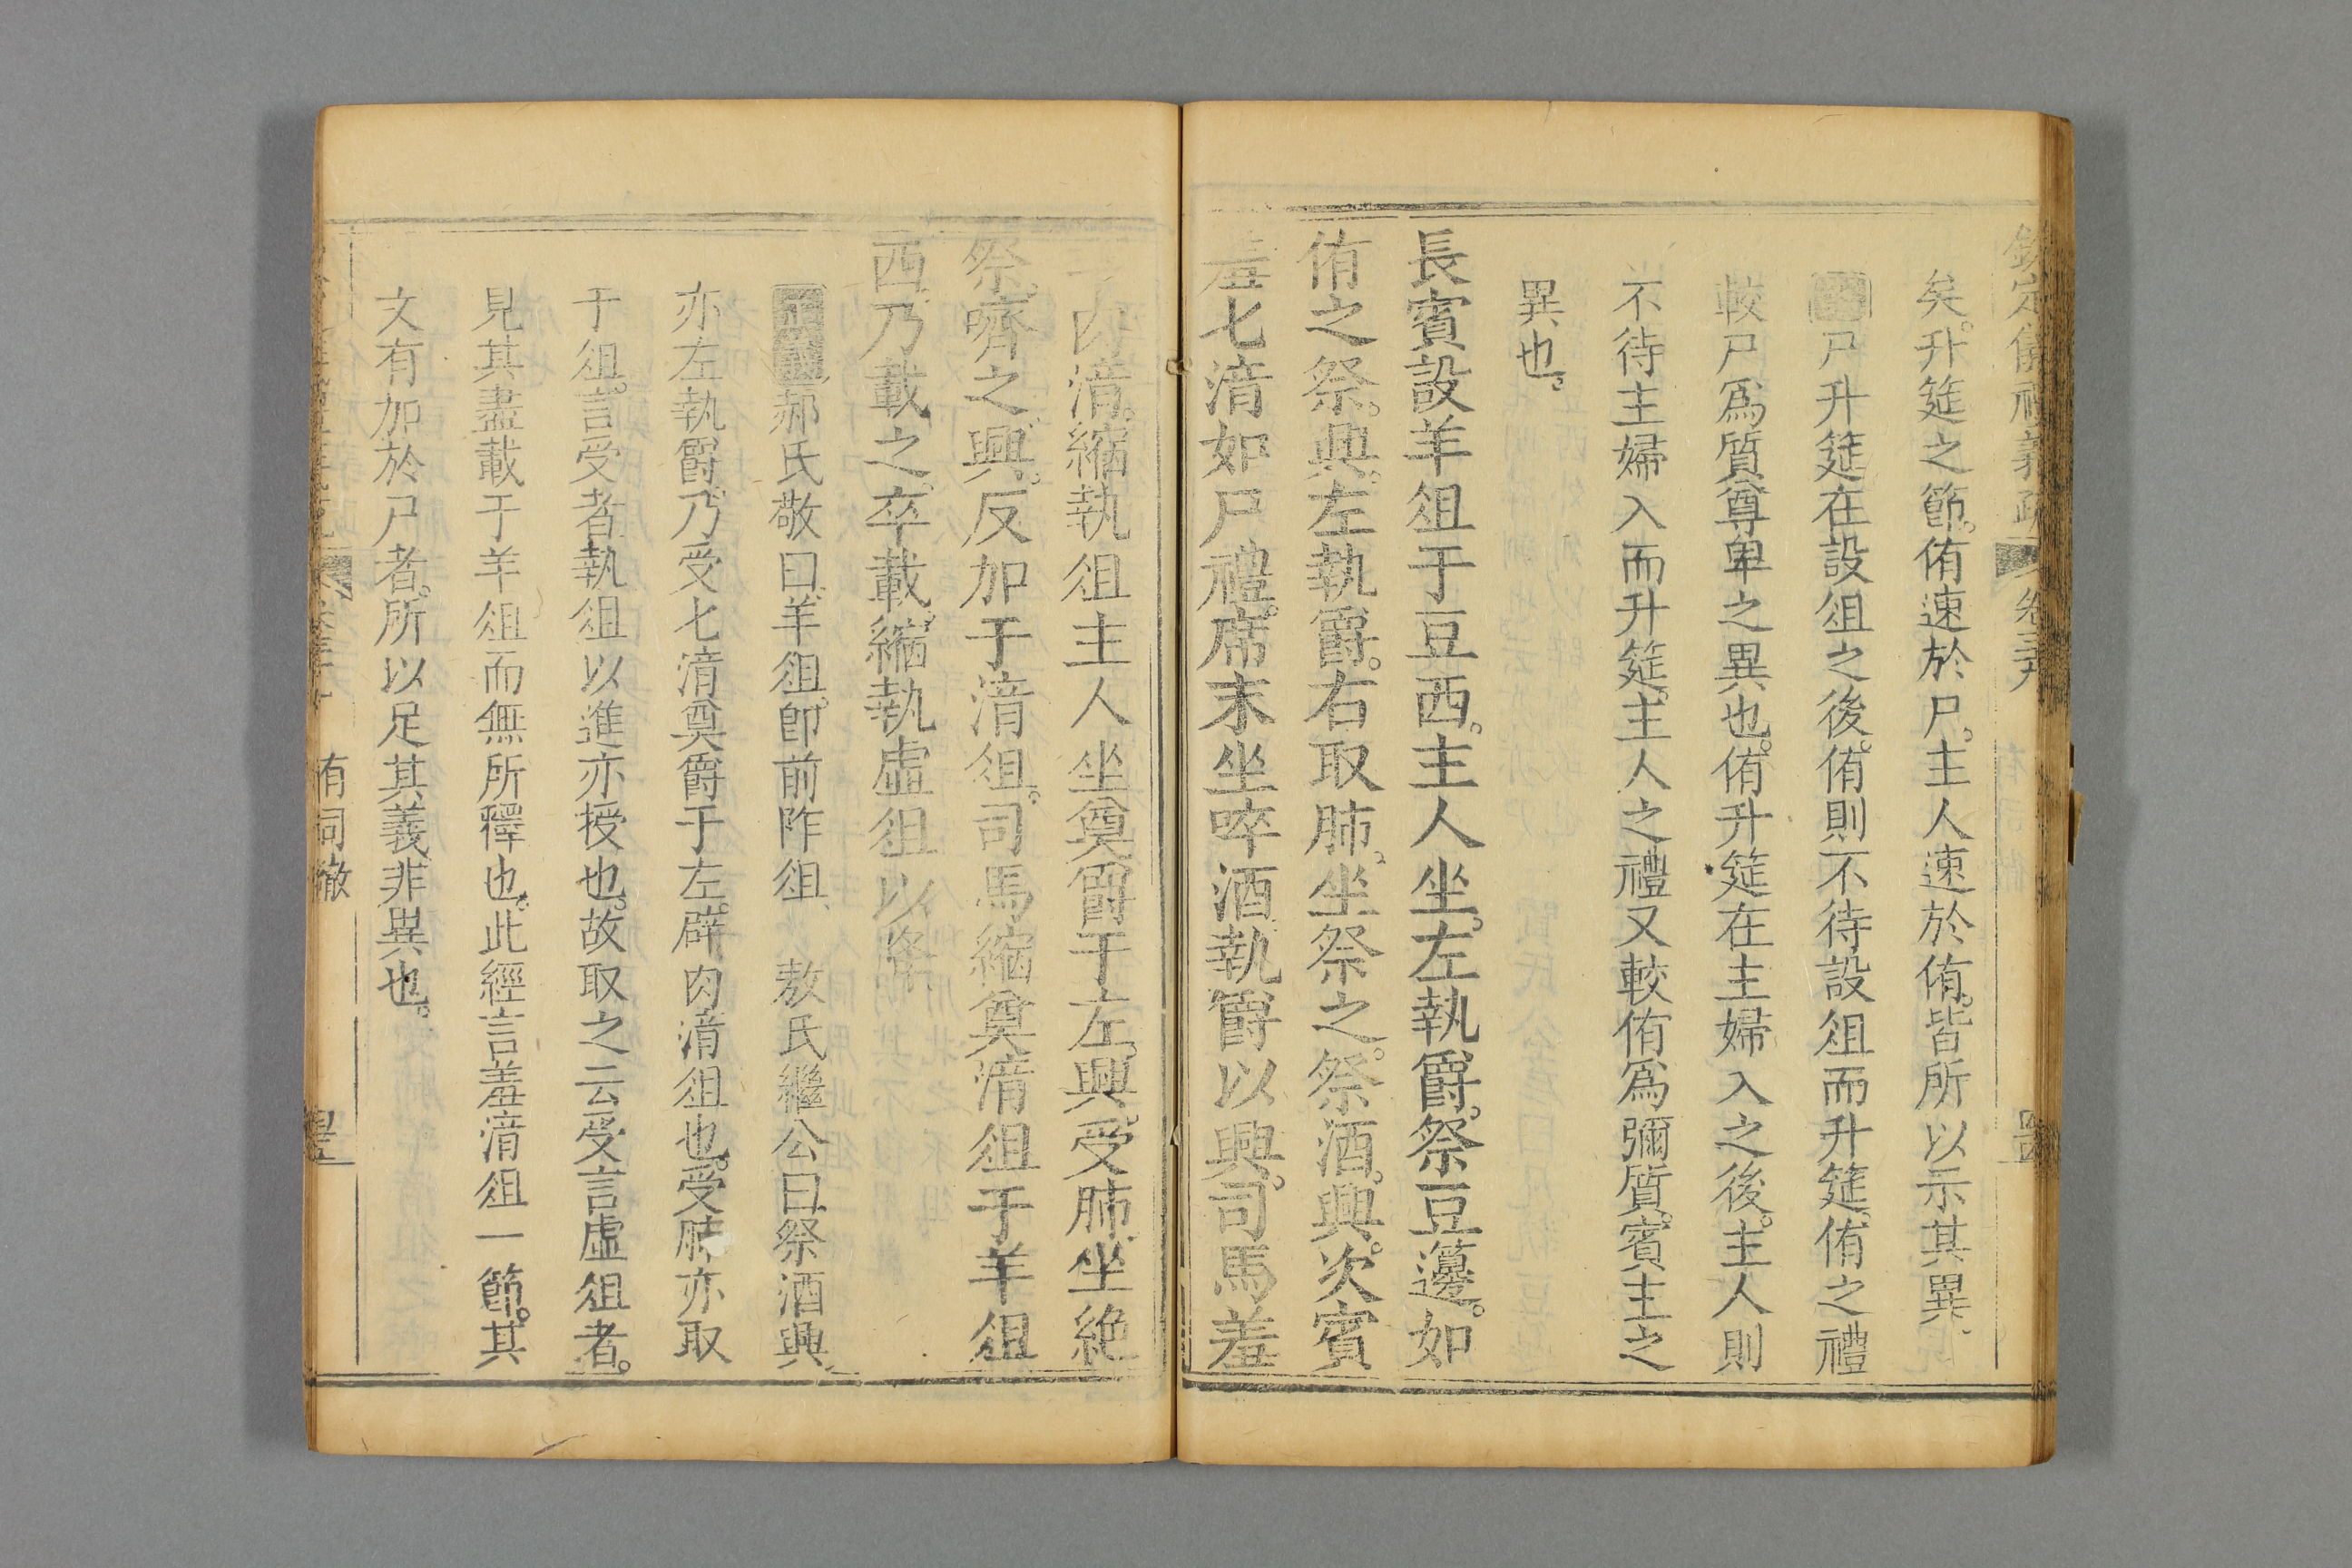 欽定儀禮義疏 卷三十九
矣。升筵之節。侑速於尸。主人速於侑。皆所以示其異。
尸升筵在設俎之後。侑則不待設俎而升筵。侑之禮
較尸爲質尊卑之異也。侑升筵在主婦入之後。主人則
不待主婦入而升筵。主人之禮又較侑爲彌質。賓主之
異也。
長賓設羊俎于豆西。主人坐。左執爵。祭豆籩。如
侑之祭。興。左執爵。右取肺。坐祭之。祭酒。興。次賓
羞匕湇如尸禮。席末坐啐酒。執爵以興。司馬羞
肉湇。縮執俎主人坐奠爵于左。興。受肺。坐絶
祭。嚌之。興。反加于湇俎。司馬縮奠湇俎于羊俎
西。乃載之。卒載。縮執虛俎以降
正義郝氏敬曰。羊俎。卽前阼俎 敖氏繼公曰祭酒興
亦左執爵。乃受匕湇奠爵于左。辟肉湇俎也。受肺亦取
于俎。言受者執俎以進亦授也。故取之云受言虛俎者。
見其盡載于羊俎而無所釋也。此經言羞湇俎一節。其
文有加於尸者。所以足其義非異也。
有司徹